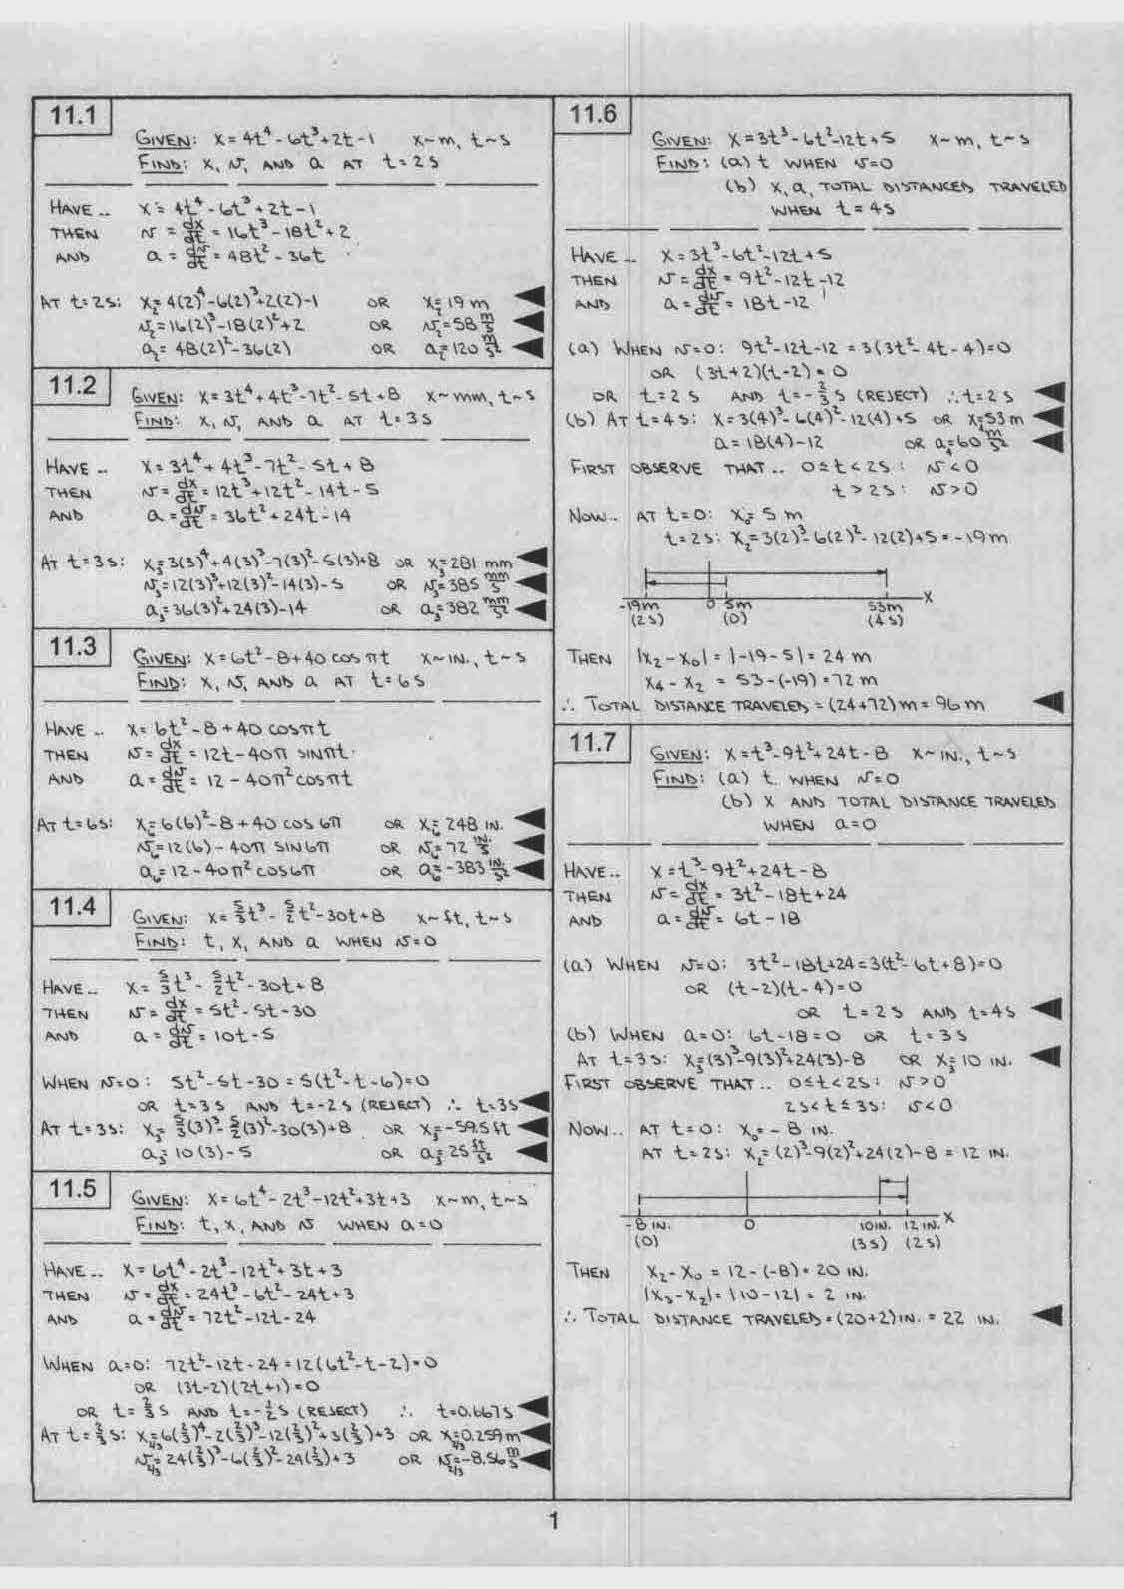 11.1
GIVEN: x = 4t⁴ - 6t³ + 2t - 1   x ~ m, t ~ s
FIND: x, v, AND a AT t = 2 s
HAVE.. x = 4t⁴ - 6t³ + 2t - 1
THEN v = dx/dt = 16t³ - 18t² + 2
AND a = dv/dt = 48t² - 36t
AT t = 2s: x₂ = 4(2)⁴ - 6(2)³ + 2(2) - 1 OR x₂ = 19 m
v₂ = 16(2)³ - 18(2)² + 2 OR v₂ = 58 m/s
a₂ = 48(2)² - 36(2) OR a₂ = 120 m/s²
11.2
GIVEN: x = 3t⁴ + 4t³ - 7t² - 5t + 8   x ~ mm, t ~ s
FIND: x, v, AND a AT t = 3 s
HAVE.. x = 3t⁴ + 4t³ - 7t² - 5t + 8
THEN v = dx/dt = 12t³ + 12t² - 14t - 5
AND a = dv/dt = 36t² + 24t - 14
AT t = 3s: x₃ = 3(3)⁴ + 4(3)³ - 7(3)² - 5(3) + 8 OR x₃ = 281 mm
v₃ = 12(3)³ + 12(3)² - 14(3) - 5 OR v₃ = 385 mm/s
a₃ = 36(3)² + 24(3) - 14 OR a₃ = 382 mm/s²
11.3
GIVEN: x = 6t² - 8 + 40 cos πt   x ~ IN., t ~ s
FIND: x, v, AND a AT t = 6 s
HAVE.. x = 6t² - 8 + 40 cos πt
THEN v = dx/dt = 12t - 40π SIN πt
AND a = dv/dt = 12 - 40π² cos πt
AT t = 6s: x₆ = 6(6)² - 8 + 40 cos 6π OR x₆ = 248 IN.
v₆ = 12(6) - 40π SIN 6π OR v₆ = 72 IN./s
a₆ = 12 - 40π² cos 6π OR a₆ = -383 IN./s²
11.4
GIVEN: x = 5/3 t³ - 5/2 t² - 30t + 8   x ~ ft, t ~ s
FIND: t, x, AND a WHEN v = 0
HAVE.. x = 5/3 t³ - 5/2 t² - 30t + 8
THEN v = dx/dt = 5t² - 5t - 30
AND a = dv/dt = 10t - 5
WHEN v = 0: 5t² - 5t - 30 = 5(t² - t - 6) = 0
OR t = 3 s AND t = -2 s (REJECT) ∴ t = 3s
AT t = 3s: x₃ = 5/3(3)³ - 5/2(3)² - 30(3) + 8 OR x₃ = -59.5 ft
a₃ = 10(3) - 5 OR a₃ = 25 ft/s²
11.5
GIVEN: x = 6t⁴ - 2t³ - 12t² + 3t + 3   x ~ m, t ~ s
FIND: t, x, AND v WHEN a = 0
HAVE.. x = 6t⁴ - 2t³ - 12t² + 3t + 3
THEN v = dx/dt = 24t³ - 6t² - 24t + 3
AND a = dv/dt = 72t² - 12t - 24
WHEN a = 0: 72t² - 12t - 24 = 12(6t² - t - 2) = 0
OR (3t - 2)(2t + 1) = 0
OR t = 2/3 s AND t = -1/2 s (REJECT) ∴ t = 0.667 s
AT t = 2/3 s: x₂/₃ = 6(2/3)⁴ - 2(2/3)³ - 12(2/3)² + 3(2/3) + 3 OR x₂/₃ = 0.259 m
v₂/₃ = 24(2/3)³ - 6(2/3)² - 24(2/3) + 3 OR v₂/₃ = -8.56 m/s
11.6
GIVEN: x = 3t³ - 6t² - 12t + 5   x ~ m, t ~ s
FIND: (a) t WHEN v = 0
(b) x, a, TOTAL DISTANCED TRAVELED
WHEN t = 4s
HAVE.. x = 3t³ - 6t² - 12t + 5
THEN v = dx/dt = 9t² - 12t - 12
AND a = dv/dt = 18t - 12
(a) WHEN v = 0: 9t² - 12t - 12 = 3(3t² - 4t - 4) = 0
OR (3t + 2)(t - 2) = 0
OR t = 2 s AND t = -2/3 s (REJECT) ∴ t = 2 s
(b) AT t = 4s: x = 3(4)³ - 6(4)² - 12(4) + 5 OR x₄ = 53 m
a = 18(4) - 12 OR a₄ = 60 m/s²
FIRST OBSERVE THAT.. 0 ≤ t < 2s: v < 0
t > 2s: v > 0
NOW.. AT t = 0: x₀ = 5 m
t = 2s: x₂ = 3(2)³ - 6(2)² - 12(2) + 5 = -19 m
-19m 0 5m 53m x
(2s) (0) (4s)
THEN |x₂ - x₀| = |-19 - 5| = 24 m
x₄ - x₂ = 53 - (-19) = 72 m
∴ TOTAL DISTANCE TRAVELED = (24 + 72) m = 96 m
11.7
GIVEN: x = t³ - 9t² + 24t - 8   x ~ IN., t ~ s
FIND: (a) t WHEN v = 0
(b) x AND TOTAL DISTANCE TRAVELED
WHEN a = 0
HAVE.. x = t³ - 9t² + 24t - 8
THEN v = dx/dt = 3t² - 18t + 24
AND a = dv/dt = 6t - 18
(a) WHEN v = 0: 3t² - 18t + 24 = 3(t² - 6t + 8) = 0
OR (t - 2)(t - 4) = 0
OR t = 2 s AND t = 4 s
(b) WHEN a = 0: 6t - 18 = 0 OR t = 3 s
AT t = 3s: x₃ = (3)³ - 9(3)² + 24(3) - 8 OR x₃ = 10 IN.
FIRST OBSERVE THAT.. 0 ≤ t < 2s: v > 0
2s < t ≤ 3s: v < 0
NOW.. AT t = 0: x₀ = -8 IN.
AT t = 2s: x₂ = (2)³ - 9(2)² + 24(2) - 8 = 12 IN.
-8 IN. 0 10 IN. 12 IN. x
(0) (3s) (2s)
THEN x₂ - x₀ = 12 - (-8) = 20 IN.
|x₃ - x₂| = |10 - 12| = 2 IN.
∴ TOTAL DISTANCE TRAVELED = (20 + 2) IN. = 22 IN.
1